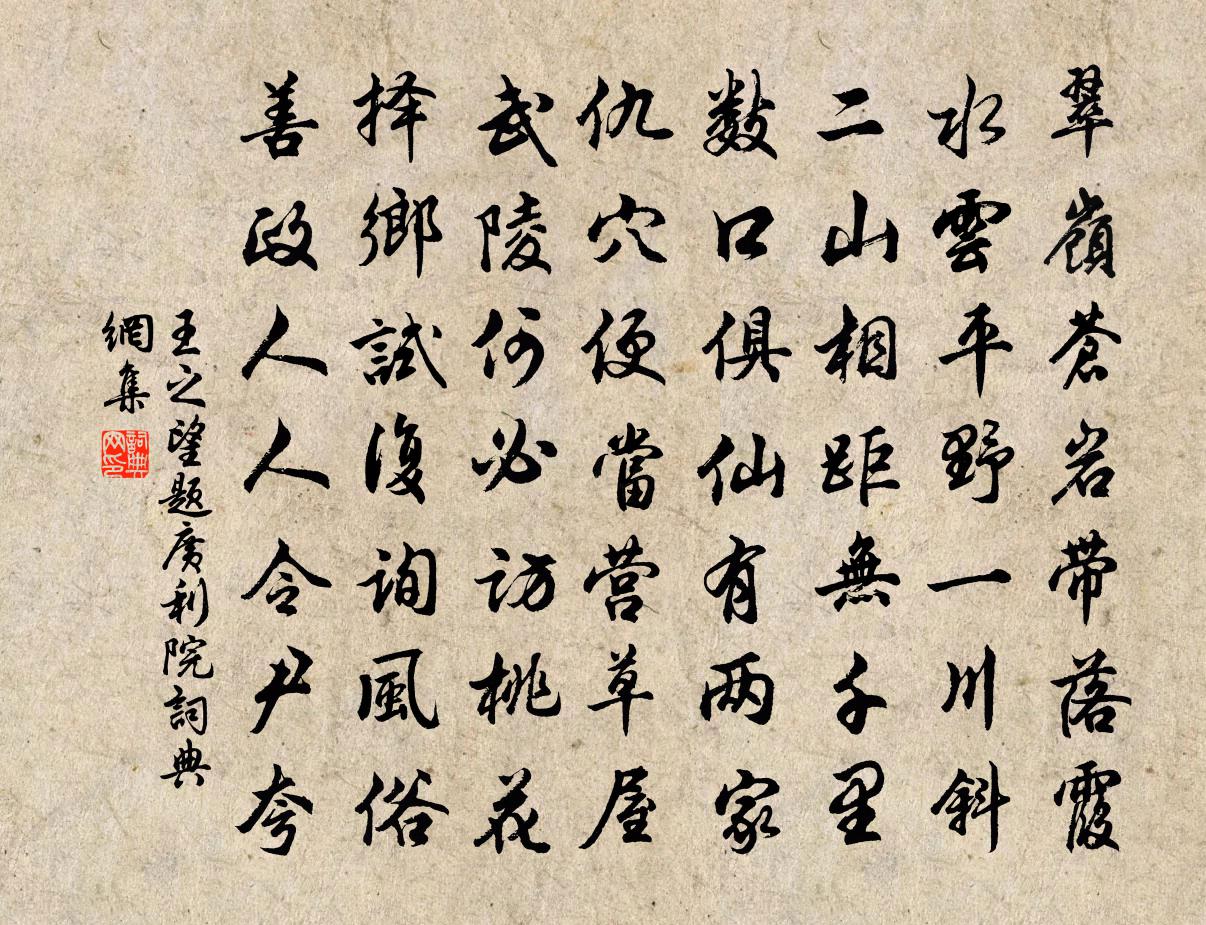 翠嶺蒼岩带落霞
水雲平野一川斜
二山相距無千里
数口俱仙有两家
仇穴便當营草屋
武陵何必访桃花
择鄉試復询風俗
善政人人令尹夸
王之望题廣利院詞典
網集
詞典网印